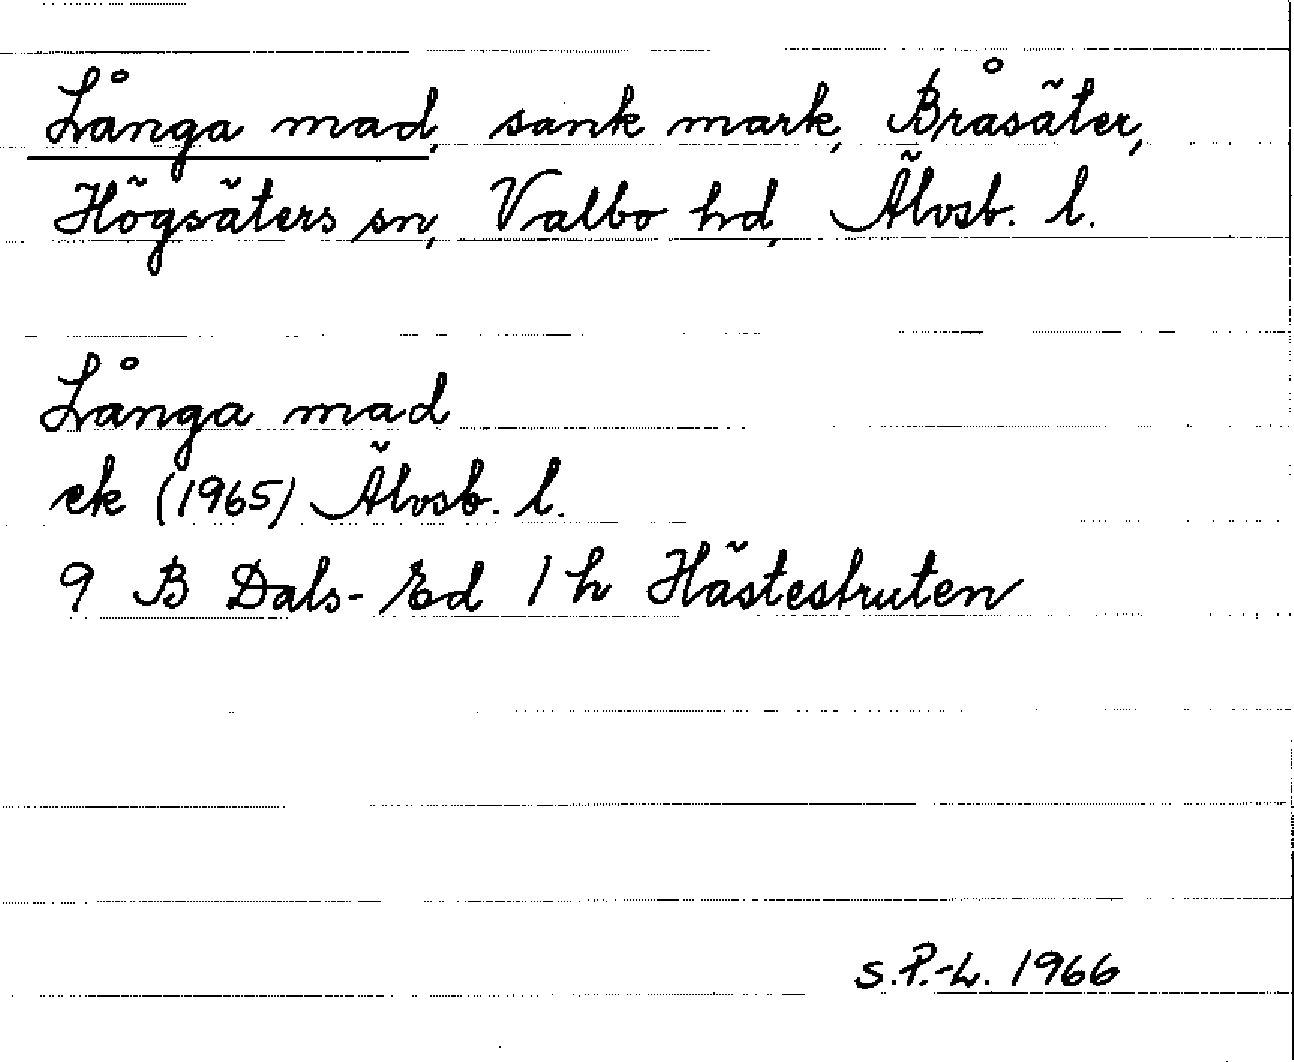 Långa mad, sank mark, Bråsäter,
Högsäters sn, Valbo hd, Älvsb. l.
Långa mad
ek (1965) Älvsb. l.
9 B Dals-Ed 1 h Hästestruten
S.P.-L. 1966